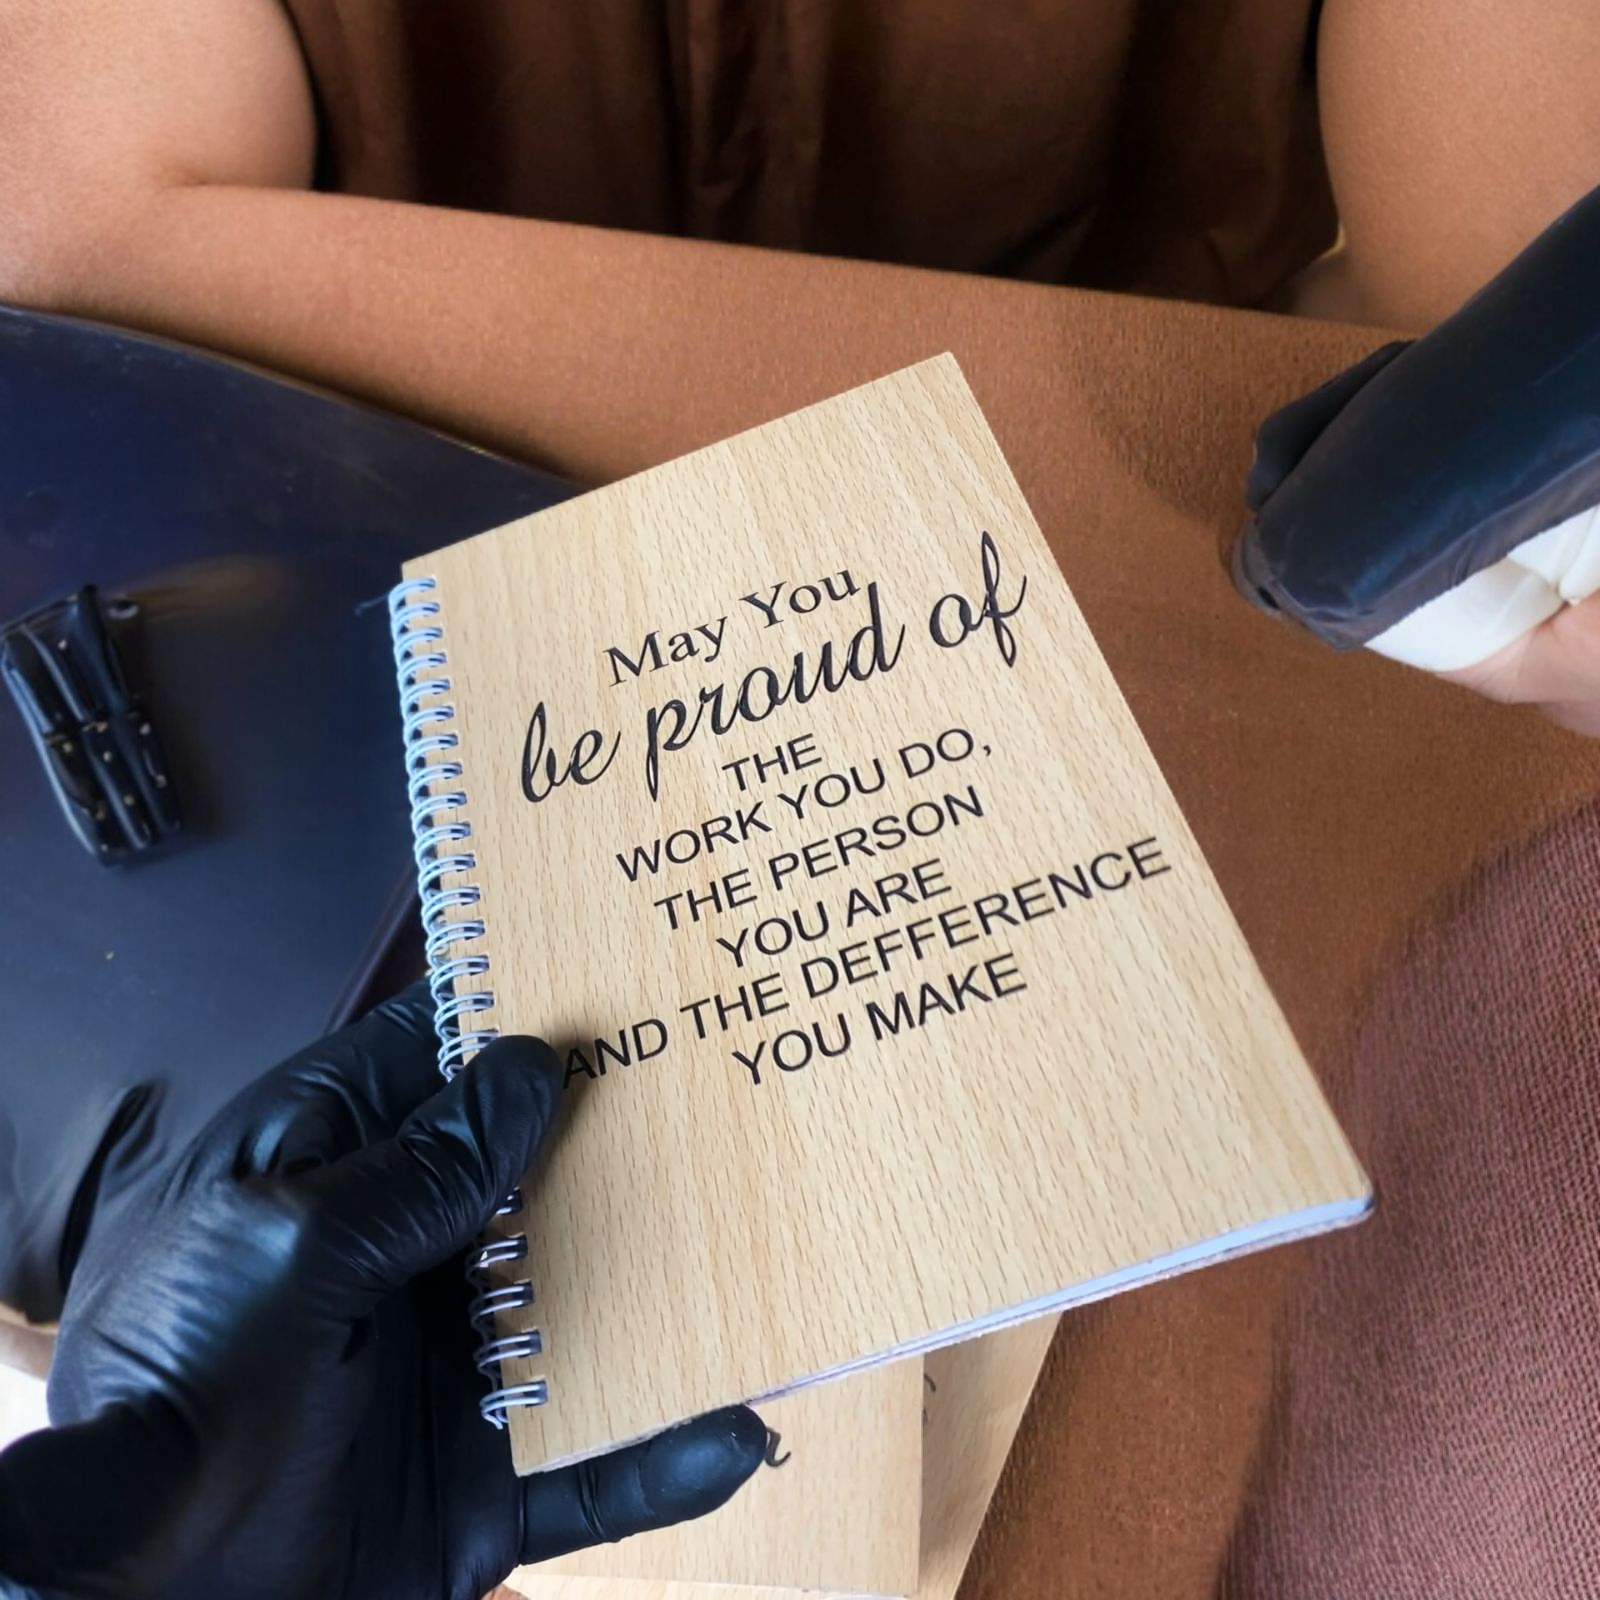 May You
be proud of
THE
WORK YOU DO,
THE PERSON
YOU ARE
AND THE DEFFERENCE
YOU MAKE